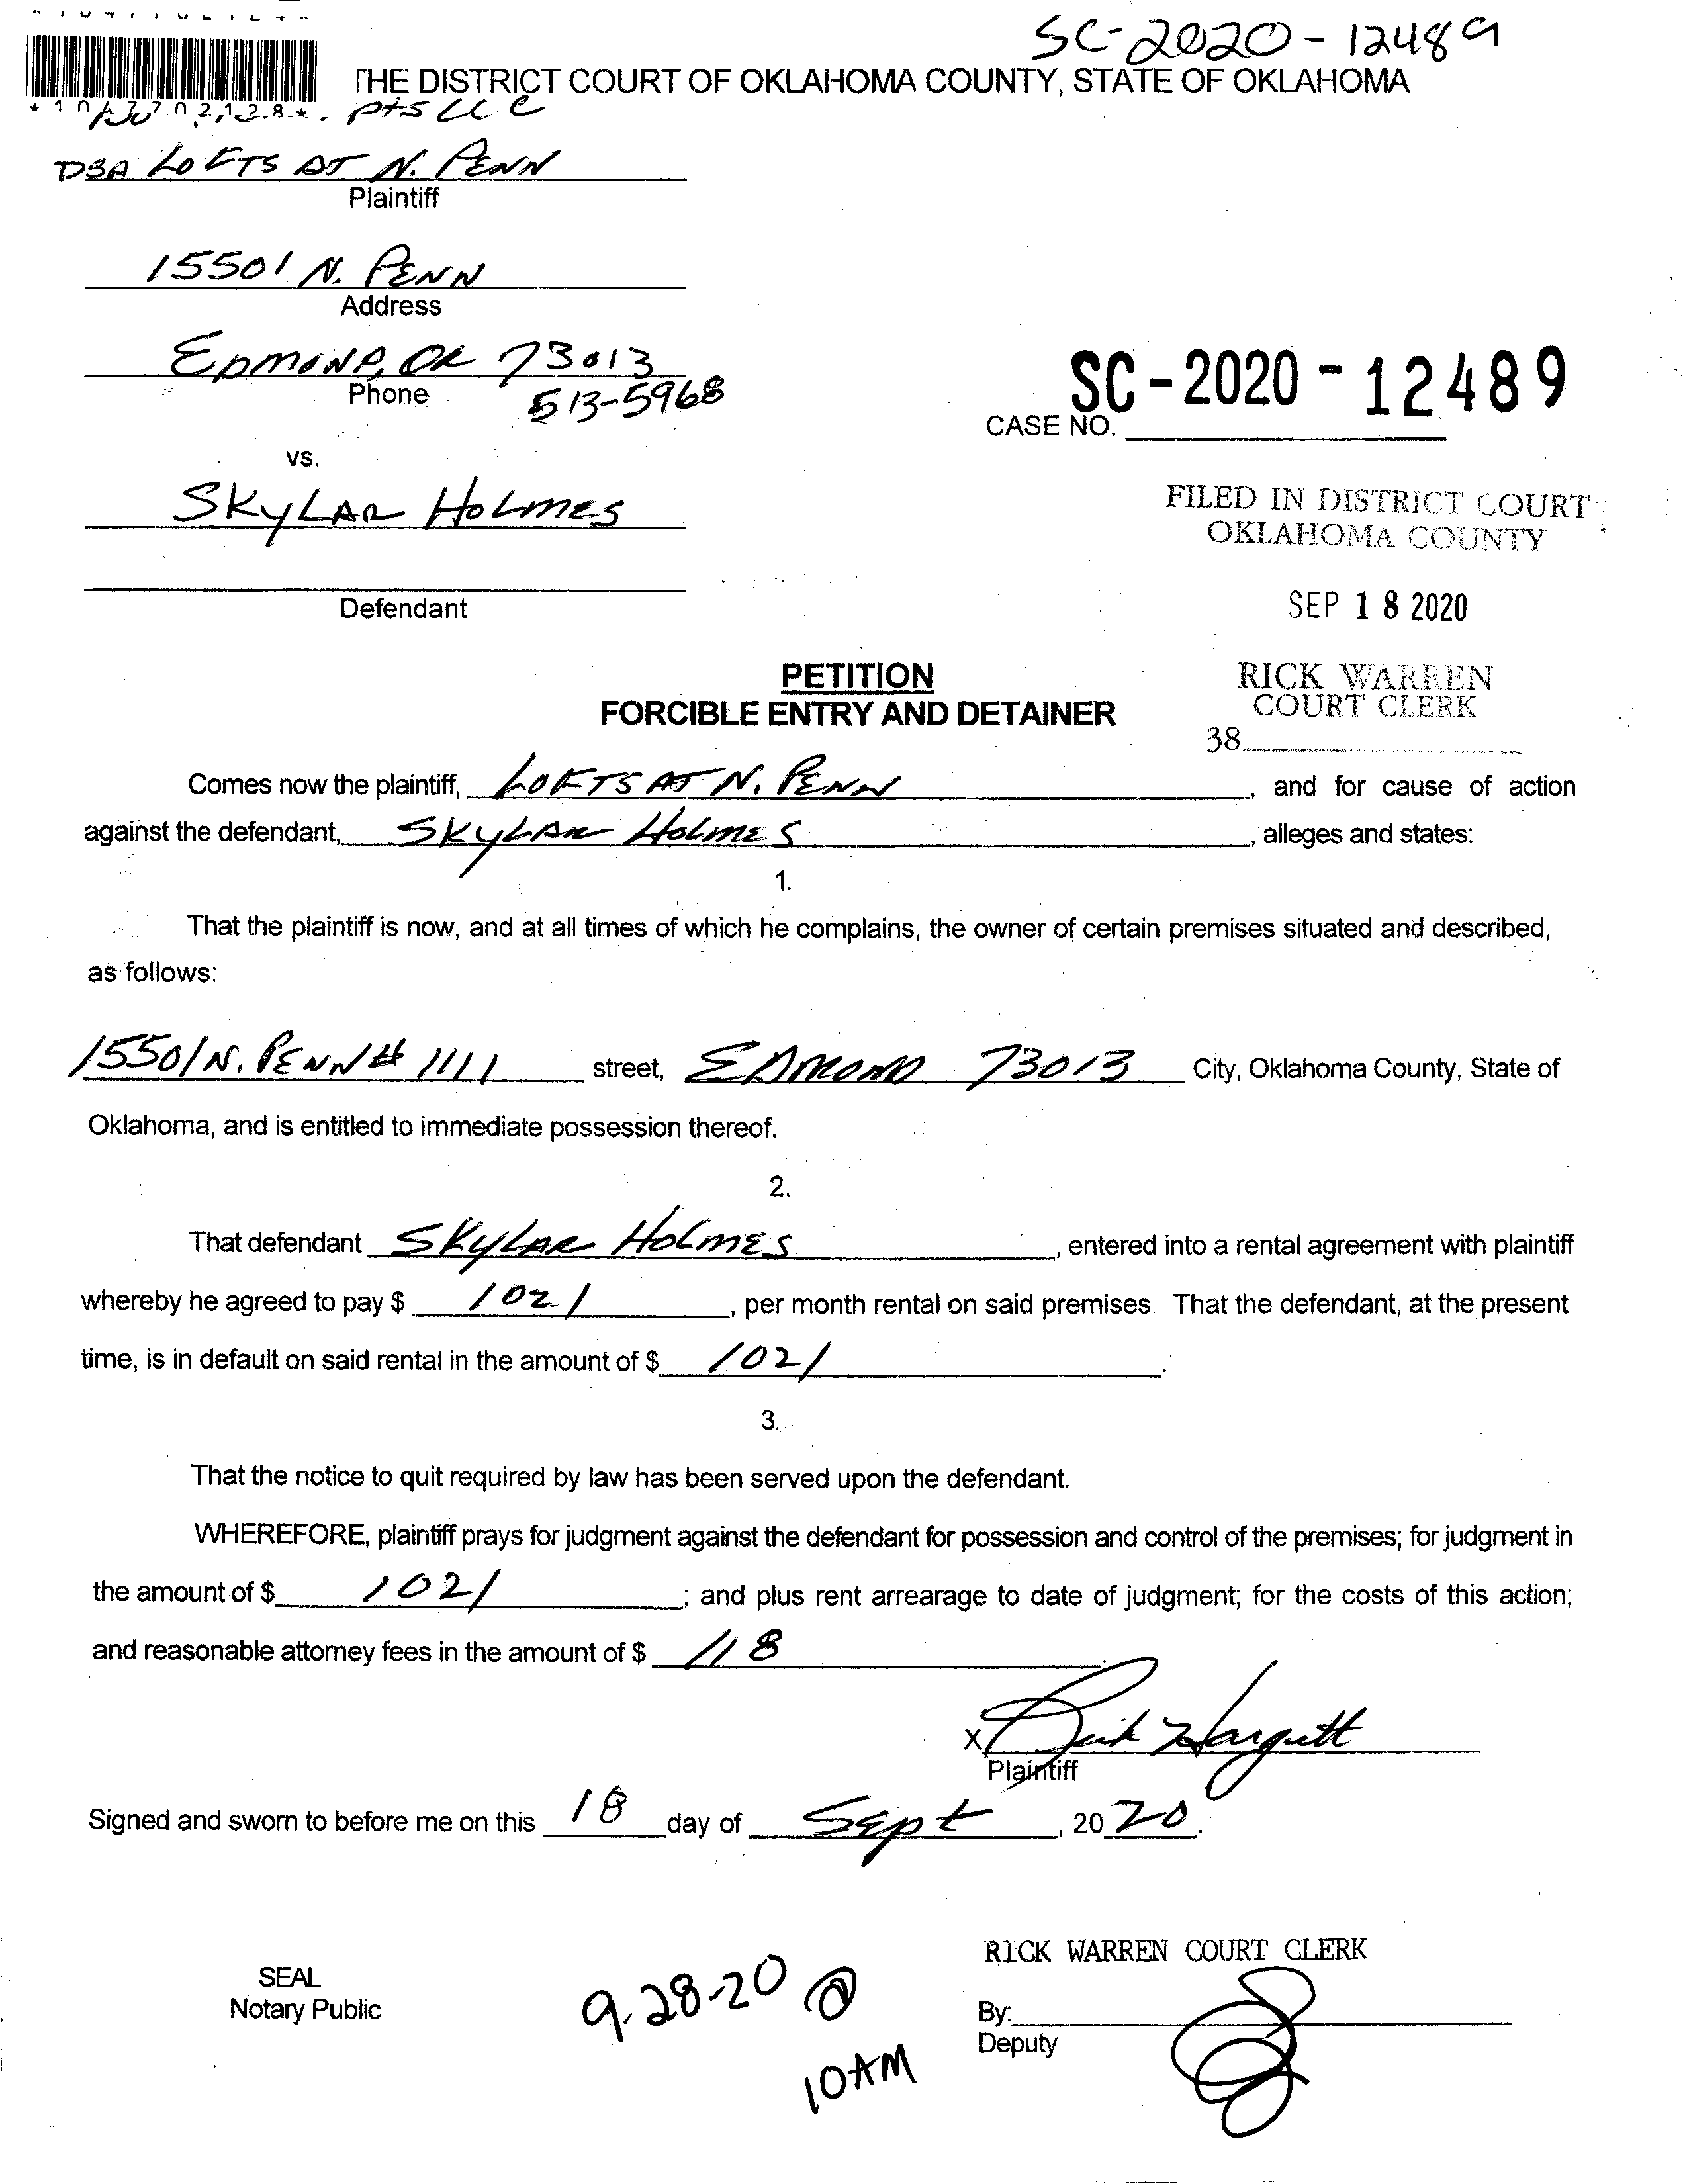 SC-2020-12489
THE DISTRICT COURT OF OKLAHOMA COUNTY, STATE OF OKLAHOMA
LLC
DBA LOFTS AT N. PENN
Plaintiff
15501 N. PENN
Address
EDMOND, OK 73013
Phone 513-5968
SC-2020-12489
CASE NO.
vs.
SKYLAR HOLMES
Defendant
FILED IN DISTRICT COURT
OKLAHOMA COUNTY
SEP 18 2020
RICK WARREN
COURT CLERK
38
PETITION
FORCIBLE ENTRY AND DETAINER
Comes now the plaintiff, LOFTS AT N. PENN, and for cause of action
against the defendant, SKYLAR HOLMES, alleges and states:
1.
That the plaintiff is now, and at all times of which he complains, the owner of certain premises situated and described,
as follows:
15501 N. PENN # 1111 street, EDMOND 73013 City, Oklahoma County, State of
Oklahoma, and is entitled to immediate possession thereof.
2.
That defendant SKYLAR HOLMES, entered into a rental agreement with plaintiff
whereby he agreed to pay $ 1021, per month rental on said premises. That the defendant, at the present
time, is in default on said rental in the amount of $ 1021.
3.
That the notice to quit required by law has been served upon the defendant.
WHEREFORE, plaintiff prays for judgment against the defendant for possession and control of the premises; for judgment in
the amount of $ 1021; and plus rent arrearage to date of judgment; for the costs of this action;
and reasonable attorney fees in the amount of $ 118.
X
Plaintiff
Signed and sworn to before me on this 18 day of Sept, 2020.
RICK WARREN COURT CLERK
SEAL
Notary Public
9-28-20 @
10AM
By:
Deputy